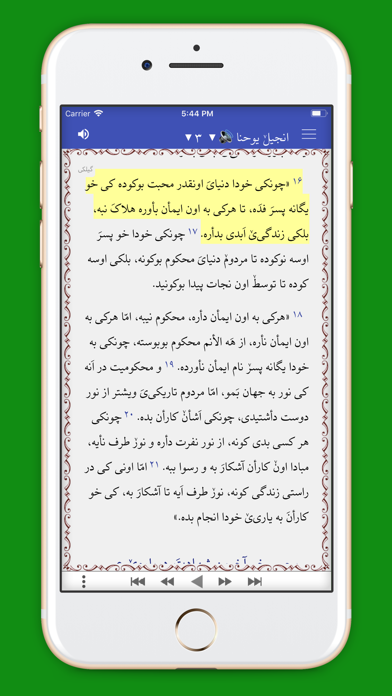 Carrier 5:44 PM
انجيلˇ يوحنا ▼ ۳ ▼
گیلکی
۱۶ «چونکی خودا دنیایَ اونقدر محبت بوکوده کی خو
یگانه پسرَ فَدَه، تا هرکی به اون ایمأن بأوره هلاکَ نبه،
بلکی زندگیٚ اَبدی بدأره. ۱۷ چونکی خودا خو پسرَ
اوسه نوکوده تا مردومَ دنیایَ محکوم بوکونه، بلکی اوسه
کوده تا توسطٚ اون نجات پیدا بوکونید.
۱۸ «هرکی به اون ایمأن دأره، محکوم نیبه، امّا هرکی به
اون ایمأن نأره، از هَه الأنم محکوم بوبوسته، چونکی به
خودا یگانه پسرٚ نام ایمأن نأورده. ۱۹ و محکومیت در اَنه
کی نور به جهان بَمو، امّا مردوم تاریکیَ ویشتر از نور
دوست دأشتیدی، چونکی اَشأنٚ کارأن بده. ۲۰ چونکی
هر کسی بدی کونه، از نور نفرت دأره و نورٚ طرف نأیه،
مبادا اونٚ کارأن آشکارَ به و رسوا ببه. ۲۱ امّا اونی کی در
راستی زندگی کونه، نورٚ طرف اَیه تا آشکارَ به، کی خو
کارأنَ به یاریٚ خودا انجام بده.»